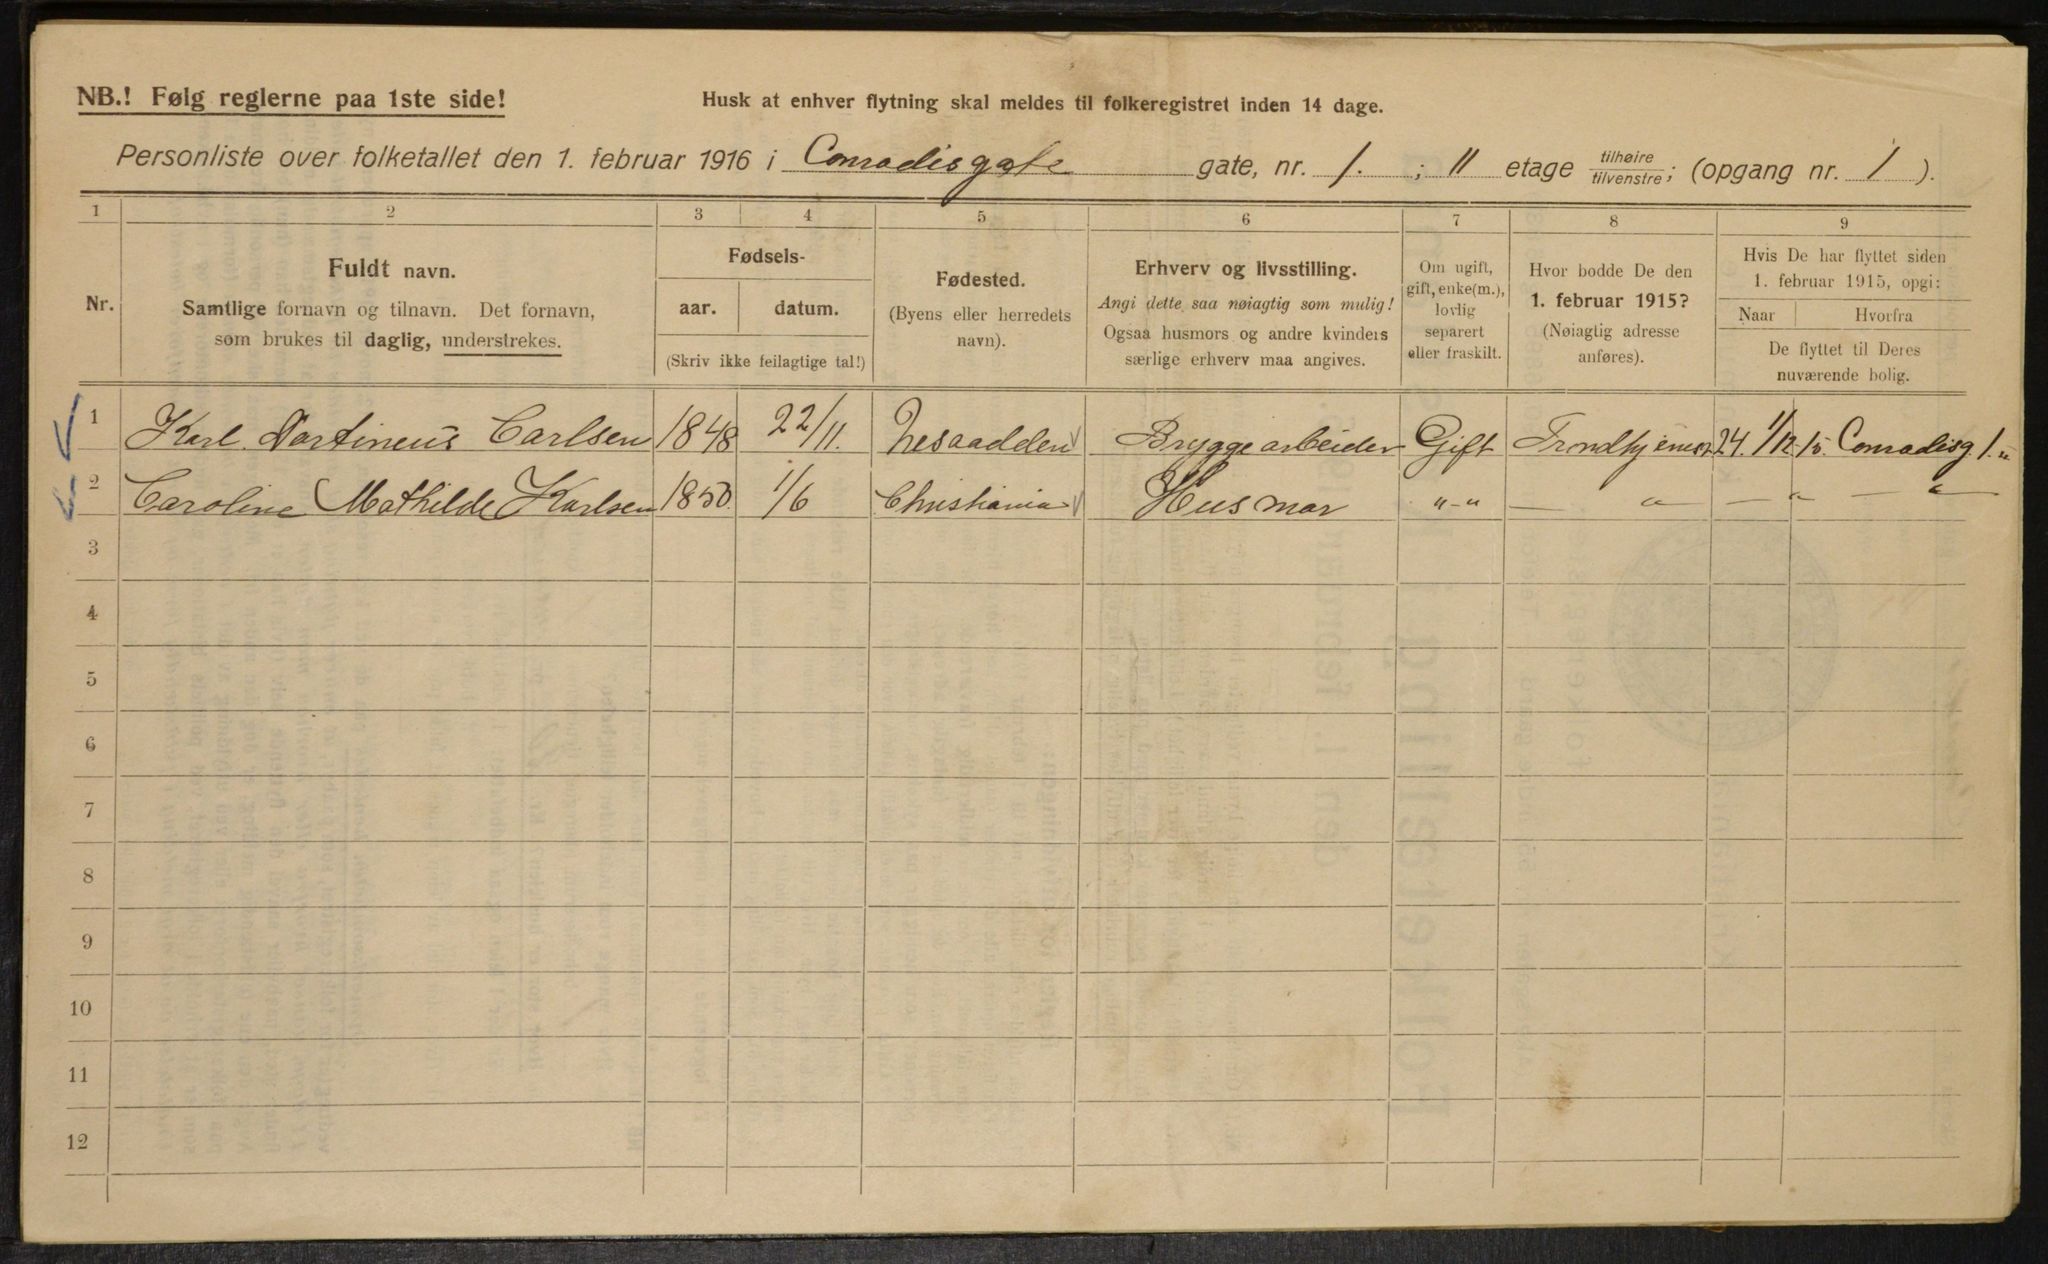 NB.! Følg reglerne paa 1ste side!
Husk at enhver flytning skal meldes til folkeregistret inden 14 dage.
Personliste over folketallet den 1. februar 1916 i Conradisgate gate, nr. 1. ; II etage tilhøire/tilvenstre; (opgang nr. 1 ).
1 2 3 4 5 6 7 8 9
Nr.
Fuldt navn.
Samtlige fornavn og tilnavn. Det fornavn,
som brukes til daglig, understrekes.
Fødsels-
aar. datum.
(Skriv ikke feilagtige tal!)
Fødested.
(Byens eller herredets
navn).
Erhverv og livsstilling.
Angi dette saa nøiagtig som mulig!
Ogsaa husmors og andre kvinders
særlige erhverv maa angives.
Om ugift,
gift, enke(m.),
lovlig
separert
eller fraskilt.
Hvor bodde De den
1. februar 1915?
(Nøiagtig adresse
anføres).
Hvis De har flyttet siden
1. februar 1915, opgi:
Naar Hvorfra
De flyttet til Deres
nuværende bolig.
1 Karl Martineus Carlsen 1848 22/11. Nesaadden Bryggearbeider Gift Trondhjemsv 24. 1/12-15. Conradisg. 1.
2 Caroline Mathilde Karlsen 1850 1/6 Christiania Husmor "-" — " — " — "
3
4
5
6
7
8
9
10
11
12